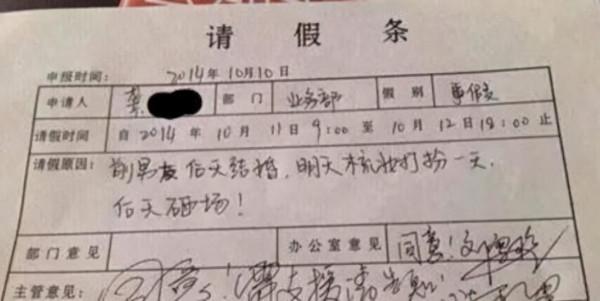 请假条
申报时间: 2014年10月10日
申请人 部门 业务部 假别 事假
请假时间 自2014年10月11日9:00至10月12日18:00止
请假原因: 前男友后天结婚,明天梳妆打扮一天.
后天砸场!
部门意见 办公室意见 同意!
主管意见: